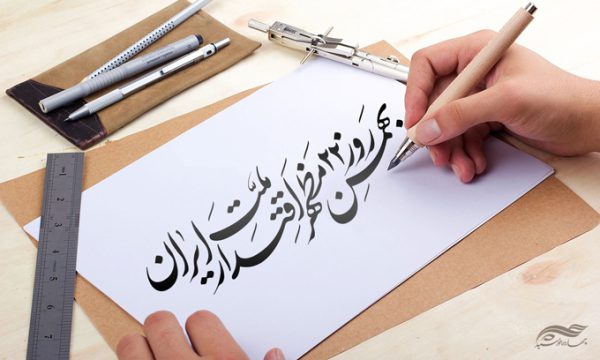 روز ۲۲ بهمن مظهر اقتدار ملت ایران
1
2
3
4
5
6
7